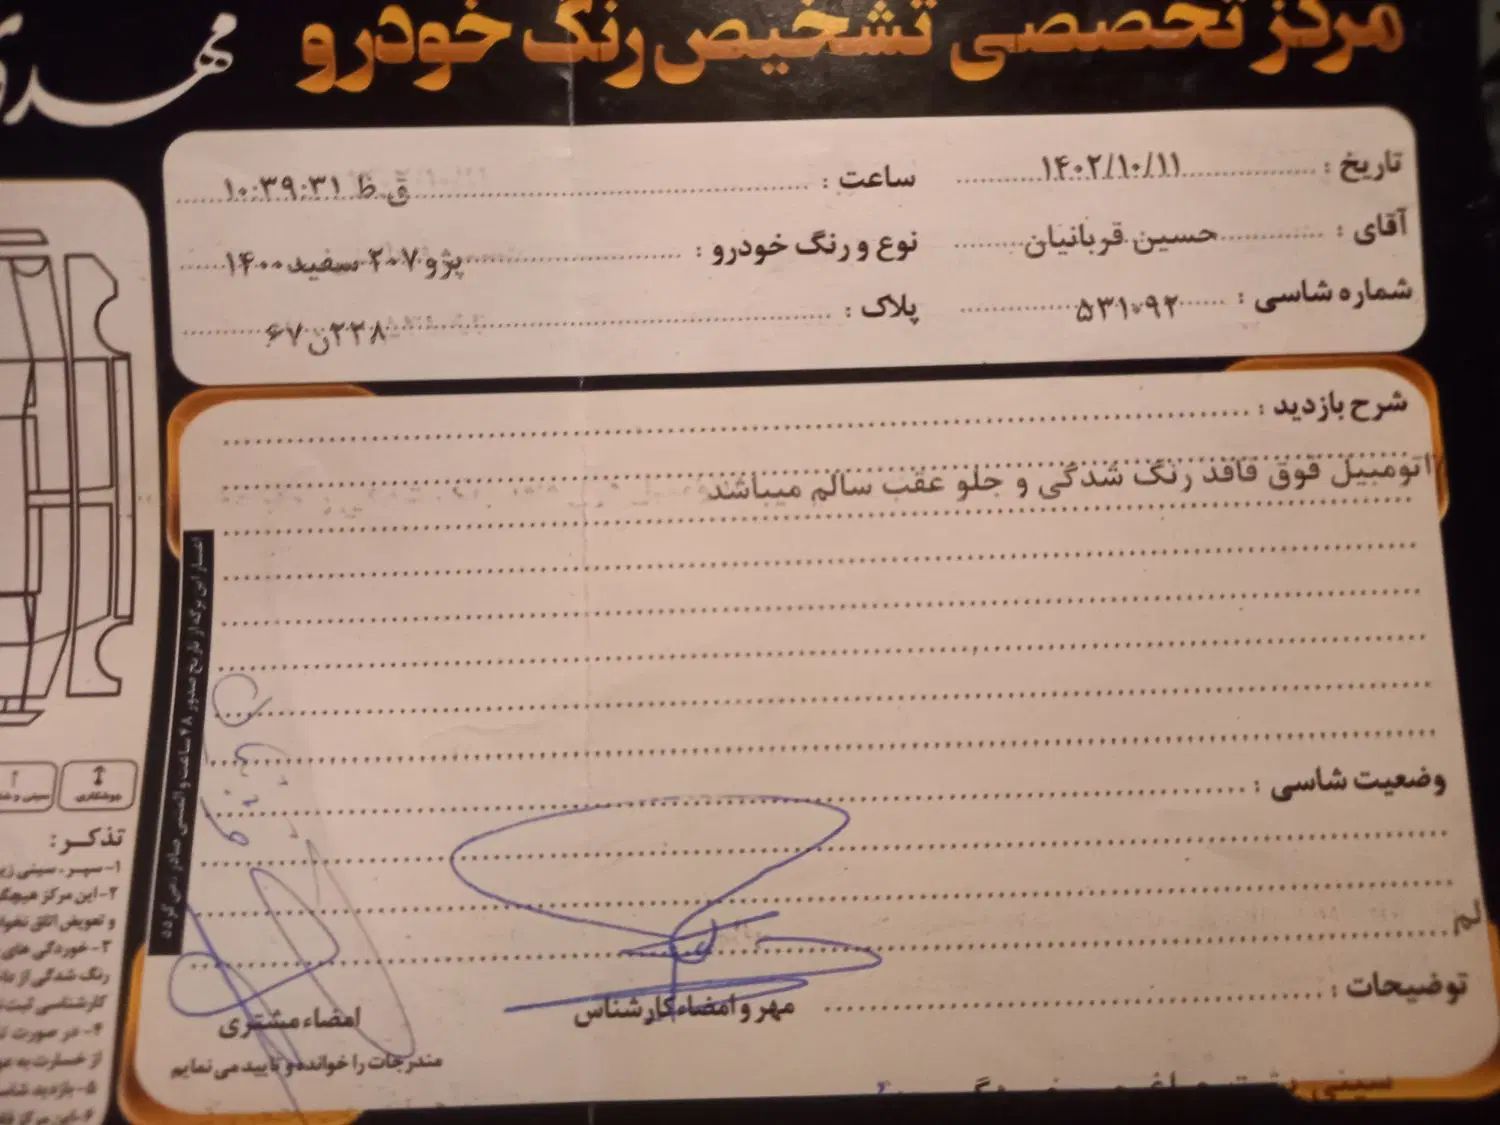 مرکز تخصصی تشخیص رنگ خودرو
مهدی
تاریخ : ۱۴۰۲/۱۰/۱۱
ساعت : ۱۰:۳۹:۳۱ ق.ظ
آقای : حسین قربانیان
نوع و رنگ خودرو : پژو ۲۰۷ سفید ۱۴۰۰
شماره شاسی : ۵۳۱۰۹۲
پلاک : ۲۳۸ن۶۷
شرح بازدید :
اتومبیل فوق فاقد رنگ شدگی و جلو عقب سالم میباشد
وضعیت شاسی :
لم
توضیحات :
مهر و امضاء کارشناس
امضاء مشتری
مندرجات را خوانده و تایید می نمایم
اعتبار این برگه از تاریخ صدور ۴۸ ساعت و المثنی صادر نمی گردد
جوشکاری
تذکر :
۱- سپر ، سینی زیر
۲- این مرکز هیچگ
و تعویض اتاق نخوا
۳- خوردگی های
رنگ شدگی از
کارشناسی ثبت
۴- در صورت
از خسارت به
۵- بازدید شاس
۶- این مرکز